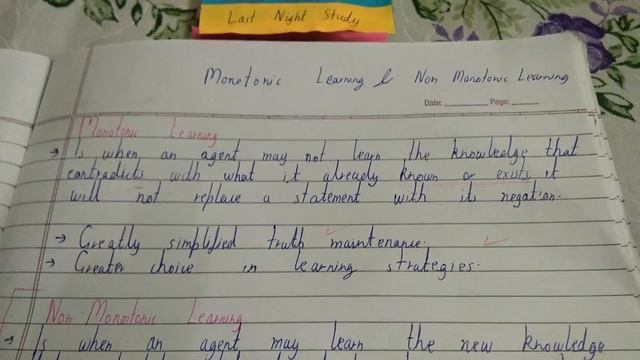 Last Night Study
Monotonic Learning & Non Monotonic Learning
Date: Page:
Monotonic Learning
→ Is when an agent may not learn the knowledge that
contradicts with what it already known or exists it
will not replace a statement with its negation.
→ Greatly simplified truth maintenance.
→ Greater choice in learning strategies.
Non-Monotonic Learning
→ Is when an agent may learn the new knowledge